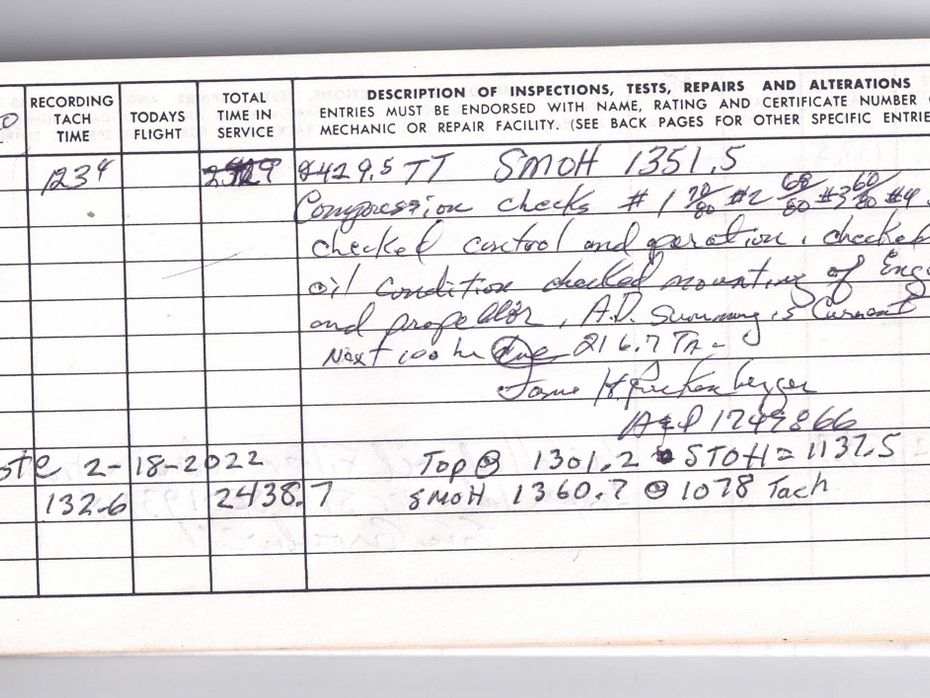 RECORDING TACH TIME
TODAYS FLIGHT
TOTAL TIME IN SERVICE
DESCRIPTION OF INSPECTIONS, TESTS, REPAIRS AND ALTERATIONS
ENTRIES MUST BE ENDORSED WITH NAME, RATING AND CERTIFICATE NUMBER
MECHANIC OR REPAIR FACILITY. (SEE BACK PAGES FOR OTHER SPECIFIC ENTRIE
1234 2429.5 TT SMOH 1351.5
Compression checks #1 70/80 #2 68/80 #3 60/80 #4
checked control and operation, checked
oil condition checked mounting of Eng
and propeller, A.D. Summary is Current
Next 100 hr due 216.7 Ta-
A&P 1749866
2-18-2022 Top @ 1301.2 STOH = 1137.5
132.6 2438.7 SMOH 1360.7 @ 1078 Tach